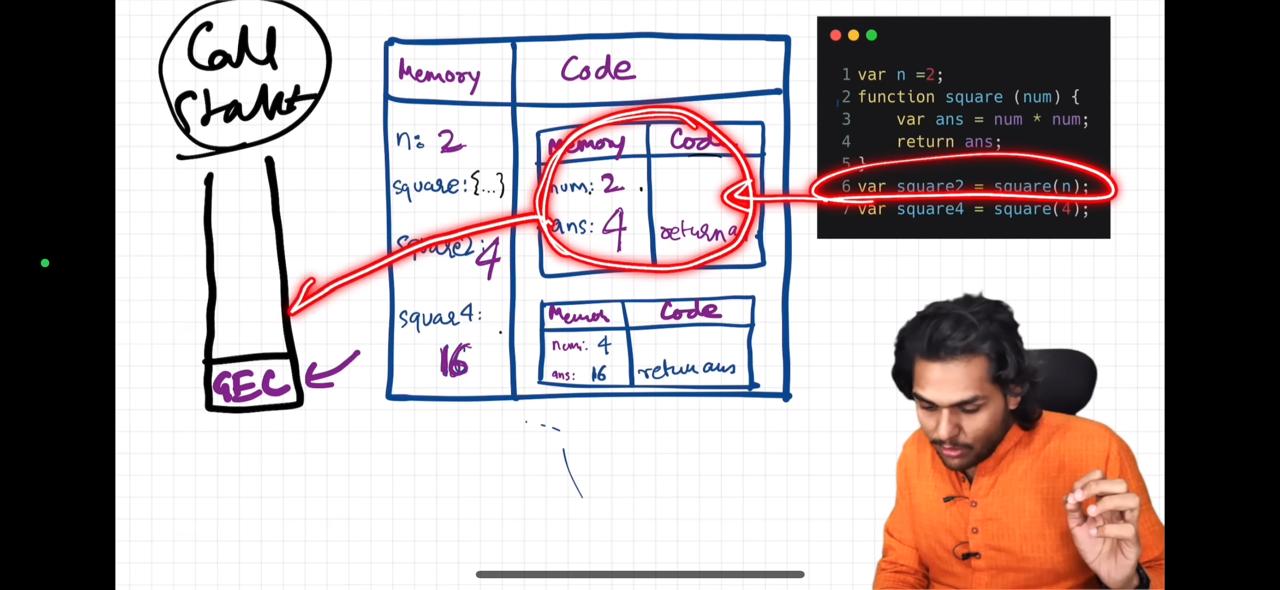 Call
Stakt
GEC
Memory Code
n: 2
square: {...}
square2: 4
squar4:
16
Memory Code
num: 2
ans: 4 return a
Memor Code
num: 4
ans: 16 return ans
1 var n =2;
2 function square (num) {
3 var ans = num * num;
4 return ans;
5 }
6 var square2 = square(n);
7 var square4 = square(4);